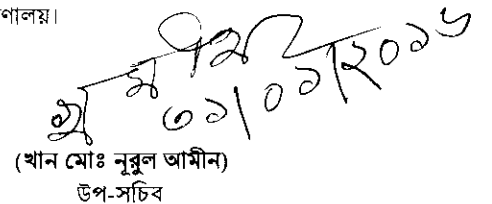 ণালয়।
৩১|০১|২০১৬
(খান মোঃ নূরুল আমীন)
উপ-সচিব